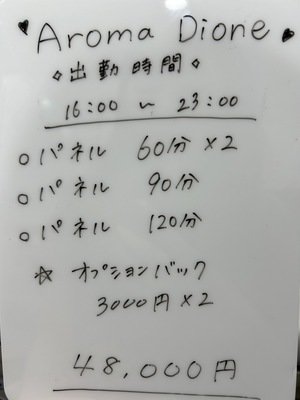 ♥ Aroma Dione ♥
◇出勤時間◇
16:00 ~ 23:00
○パネル 60分×2
○パネル 90分
○パネル 120分
☆ オプションバック
3000円×2
48,000円